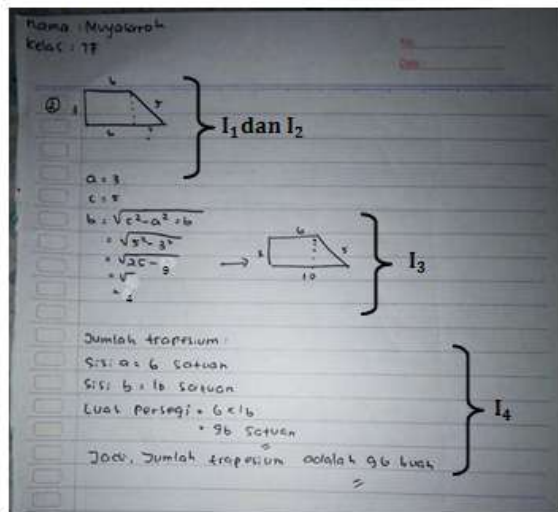 Nama : Muyasaroh
Kelas : 7F
No.
Date.
②
6
3 5
6 ?
I₁ dan I₂
a = 3
c = 5
b = √c² - a² = b
= √5² - 3²
= √25 - 9
= √
=
→
6
3 5
10
I₃
Jumlah trapesium :
Sisi a = 6 satuan
Sisi b = 10 satuan
Luas persegi = 6 × 16
= 96 satuan
Jadi, Jumlah trapesium adalah 96 buah
I₄